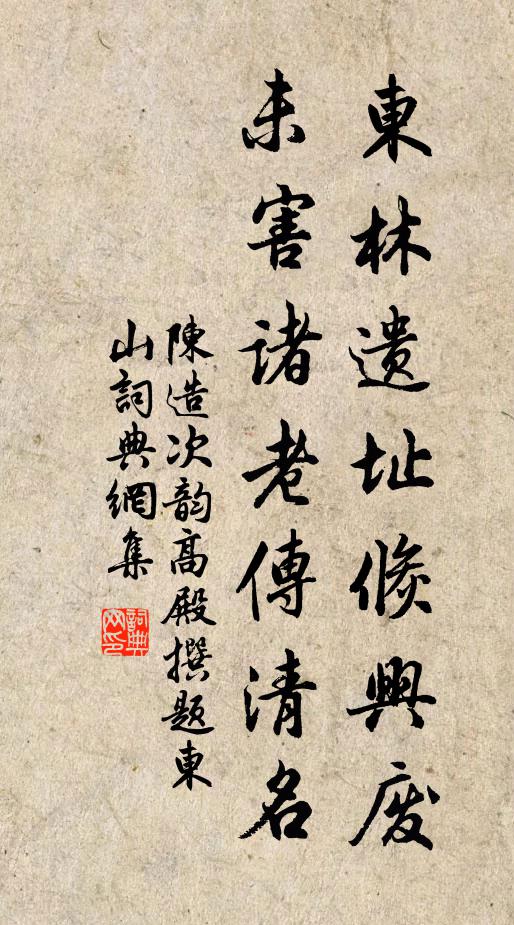 東林遗址倐興廢
未害诸老傳清名
陳造次韵高殿撰题東
山詞典網集
詞典
网印